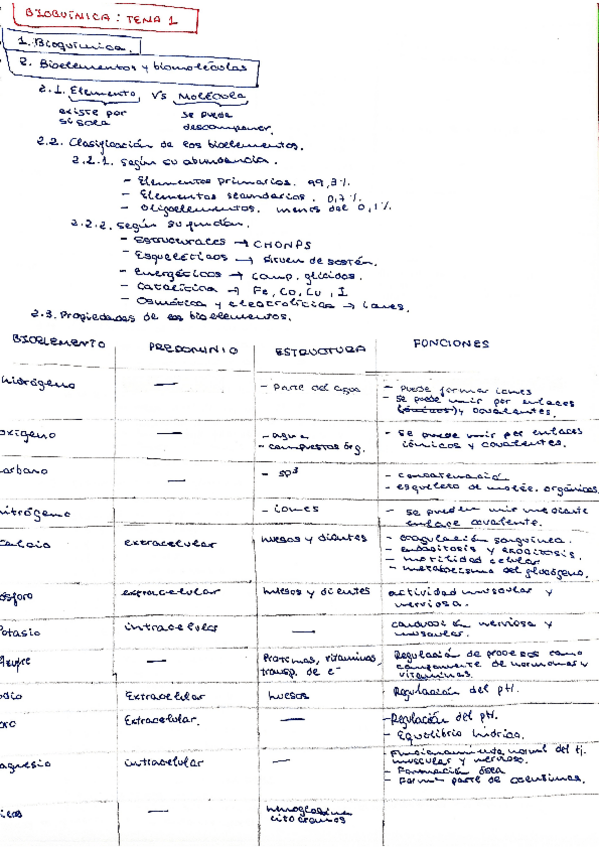 BIOQUÍMICA: TEMA 1
1. Bioquímica.
2. Bioelementos y biomoléculas
2.1. Elemento vs Molécula
existe por sí sola
se puede descomponer.
2.2. Clasificación de los bioelementos.
2.2.1. según su abundancia.
- Elementos primarios. 99,3%.
- Elementos secundarios. 0,7%.
- Oligoelementos. menos del 0,1%
2.2.2. según su función.
- Estructurales → CHONPS
- Esqueléticos → sirven de sostén.
- Energéticos → comp. glícidos.
- Catalítica → Fe, Co, Cu, I
- Osmótica y electrolítica → iones.
2.3. Propiedades de los bioelementos.
BIOELEMENTO PREDOMINIO ESTRUCTURA FUNCIONES
hidrógeno — - Parte del agua - puede formar iones
- se puede unir por enlaces
(iónicos) y covalentes.
oxígeno — - agua - se puede unir por enlaces
- compuestos órg. iónicos y covalentes.
carbono — - sp³ - concatenación
- esqueleto de moléc. orgánicas
nitrógeno - iones - se pueden unir mediante
enlace covalente.
calcio extracelular huesos y dientes - coagulación sanguínea.
- endocitosis y exocitosis.
- motilidad celular
- metabolismo del glucógeno.
ósforo extracelular huesos y dientes actividad muscular y
nerviosa.
Potasio intracelular — conducción nerviosa y
muscular.
Azufre — Proteínas, vitaminas, Regulación de procesos como
transp. de e⁻ componente de hormonas y
vitaminas.
odio Extracelular huesos - Regulación del pH.
oro Extracelular. — - Regulación del pH.
- Equilibrio hídrico.
agnesio intracelular — Funcionamiento normal del tj.
muscular y nervioso.
- Formación ósea
- Forma parte de coenzimas.
— hemoglobina
citocromos